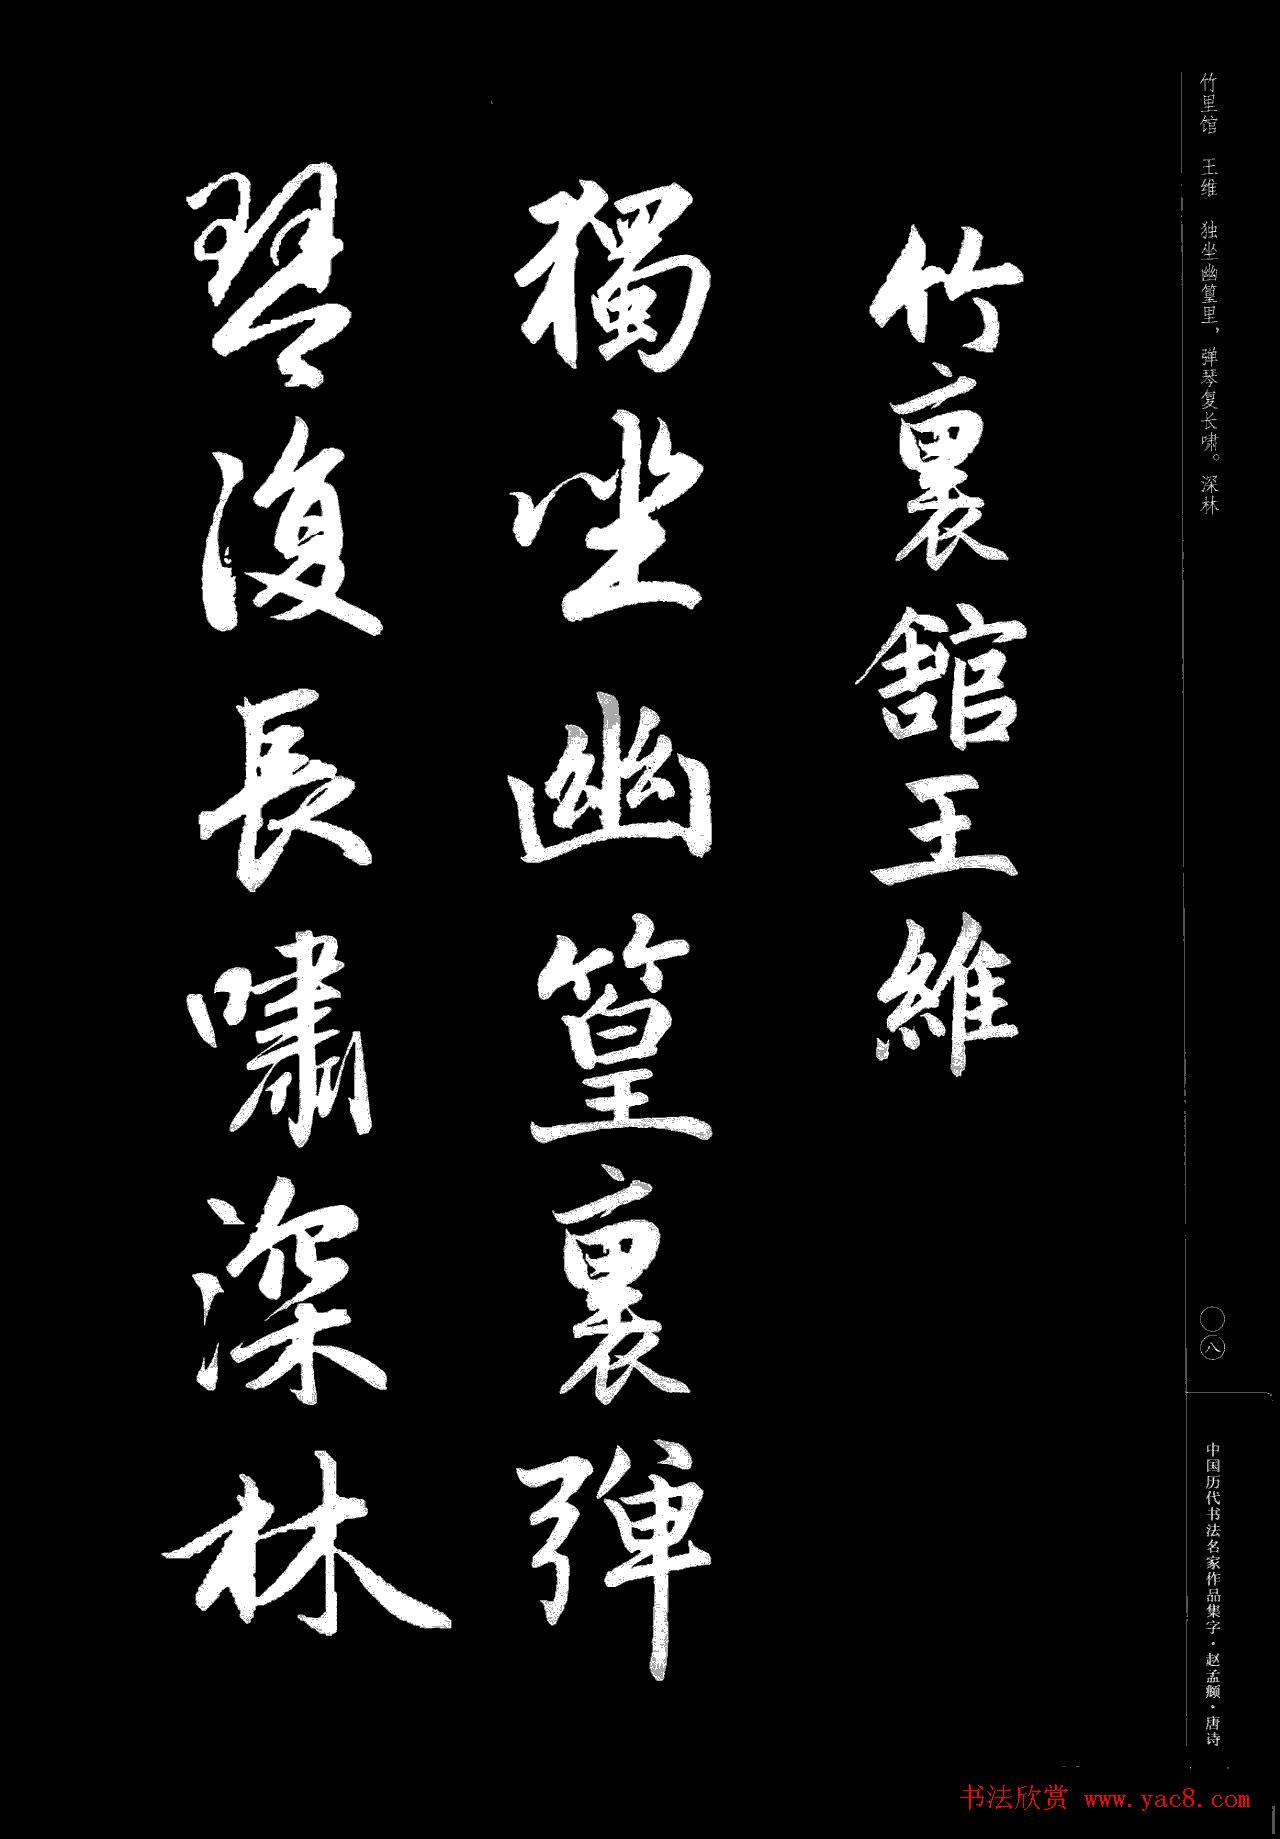 竹里馆 王维 独坐幽篁里，弹琴复长啸。深林
〇八
中国历代书法名家作品集字·赵孟頫·唐诗
竹裏館王維
獨坐幽篁裏彈
琴復長嘯深林
书法欣赏 www.yac8.com